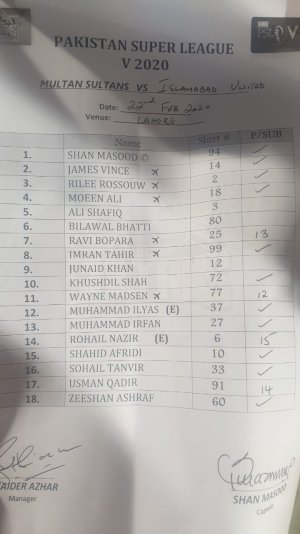 PSL V
PAKISTAN SUPER LEAGUE
V 2020
MULTAN SULTANS VS ISLAMABAD UNITED
Date: 22nd FEB 2020
Venue: LAHORE
Name Shirt # P/SUB
1. SHAN MASOOD © 94 ✓
2. JAMES VINCE ✈ 14 ✓
3. RILEE ROSSOUW ✈ 2 ✓
4. MOEEN ALI ✈ 18 ✓
5. ALI SHAFIQ 3
6. BILAWAL BHATTI 80
7. RAVI BOPARA ✈ 25 13
8. IMRAN TAHIR ✈ 99 ✓
9. JUNAID KHAN 12
10. KHUSHDIL SHAH 72 ✓
11. WAYNE MADSEN ✈ 77 12
12. MUHAMMAD ILYAS (E) 37 ✓
13. MUHAMMAD IRFAN 27 ✓
14. ROHAIL NAZIR (E) 6 15
15. SHAHID AFRIDI 10 ✓
16. SOHAIL TANVIR 33 ✓
17. USMAN QADIR 91 14
18. ZEESHAN ASHRAF 60 ✓
AIDER AZHAR
Manager
SHAN MASOOD
Captain